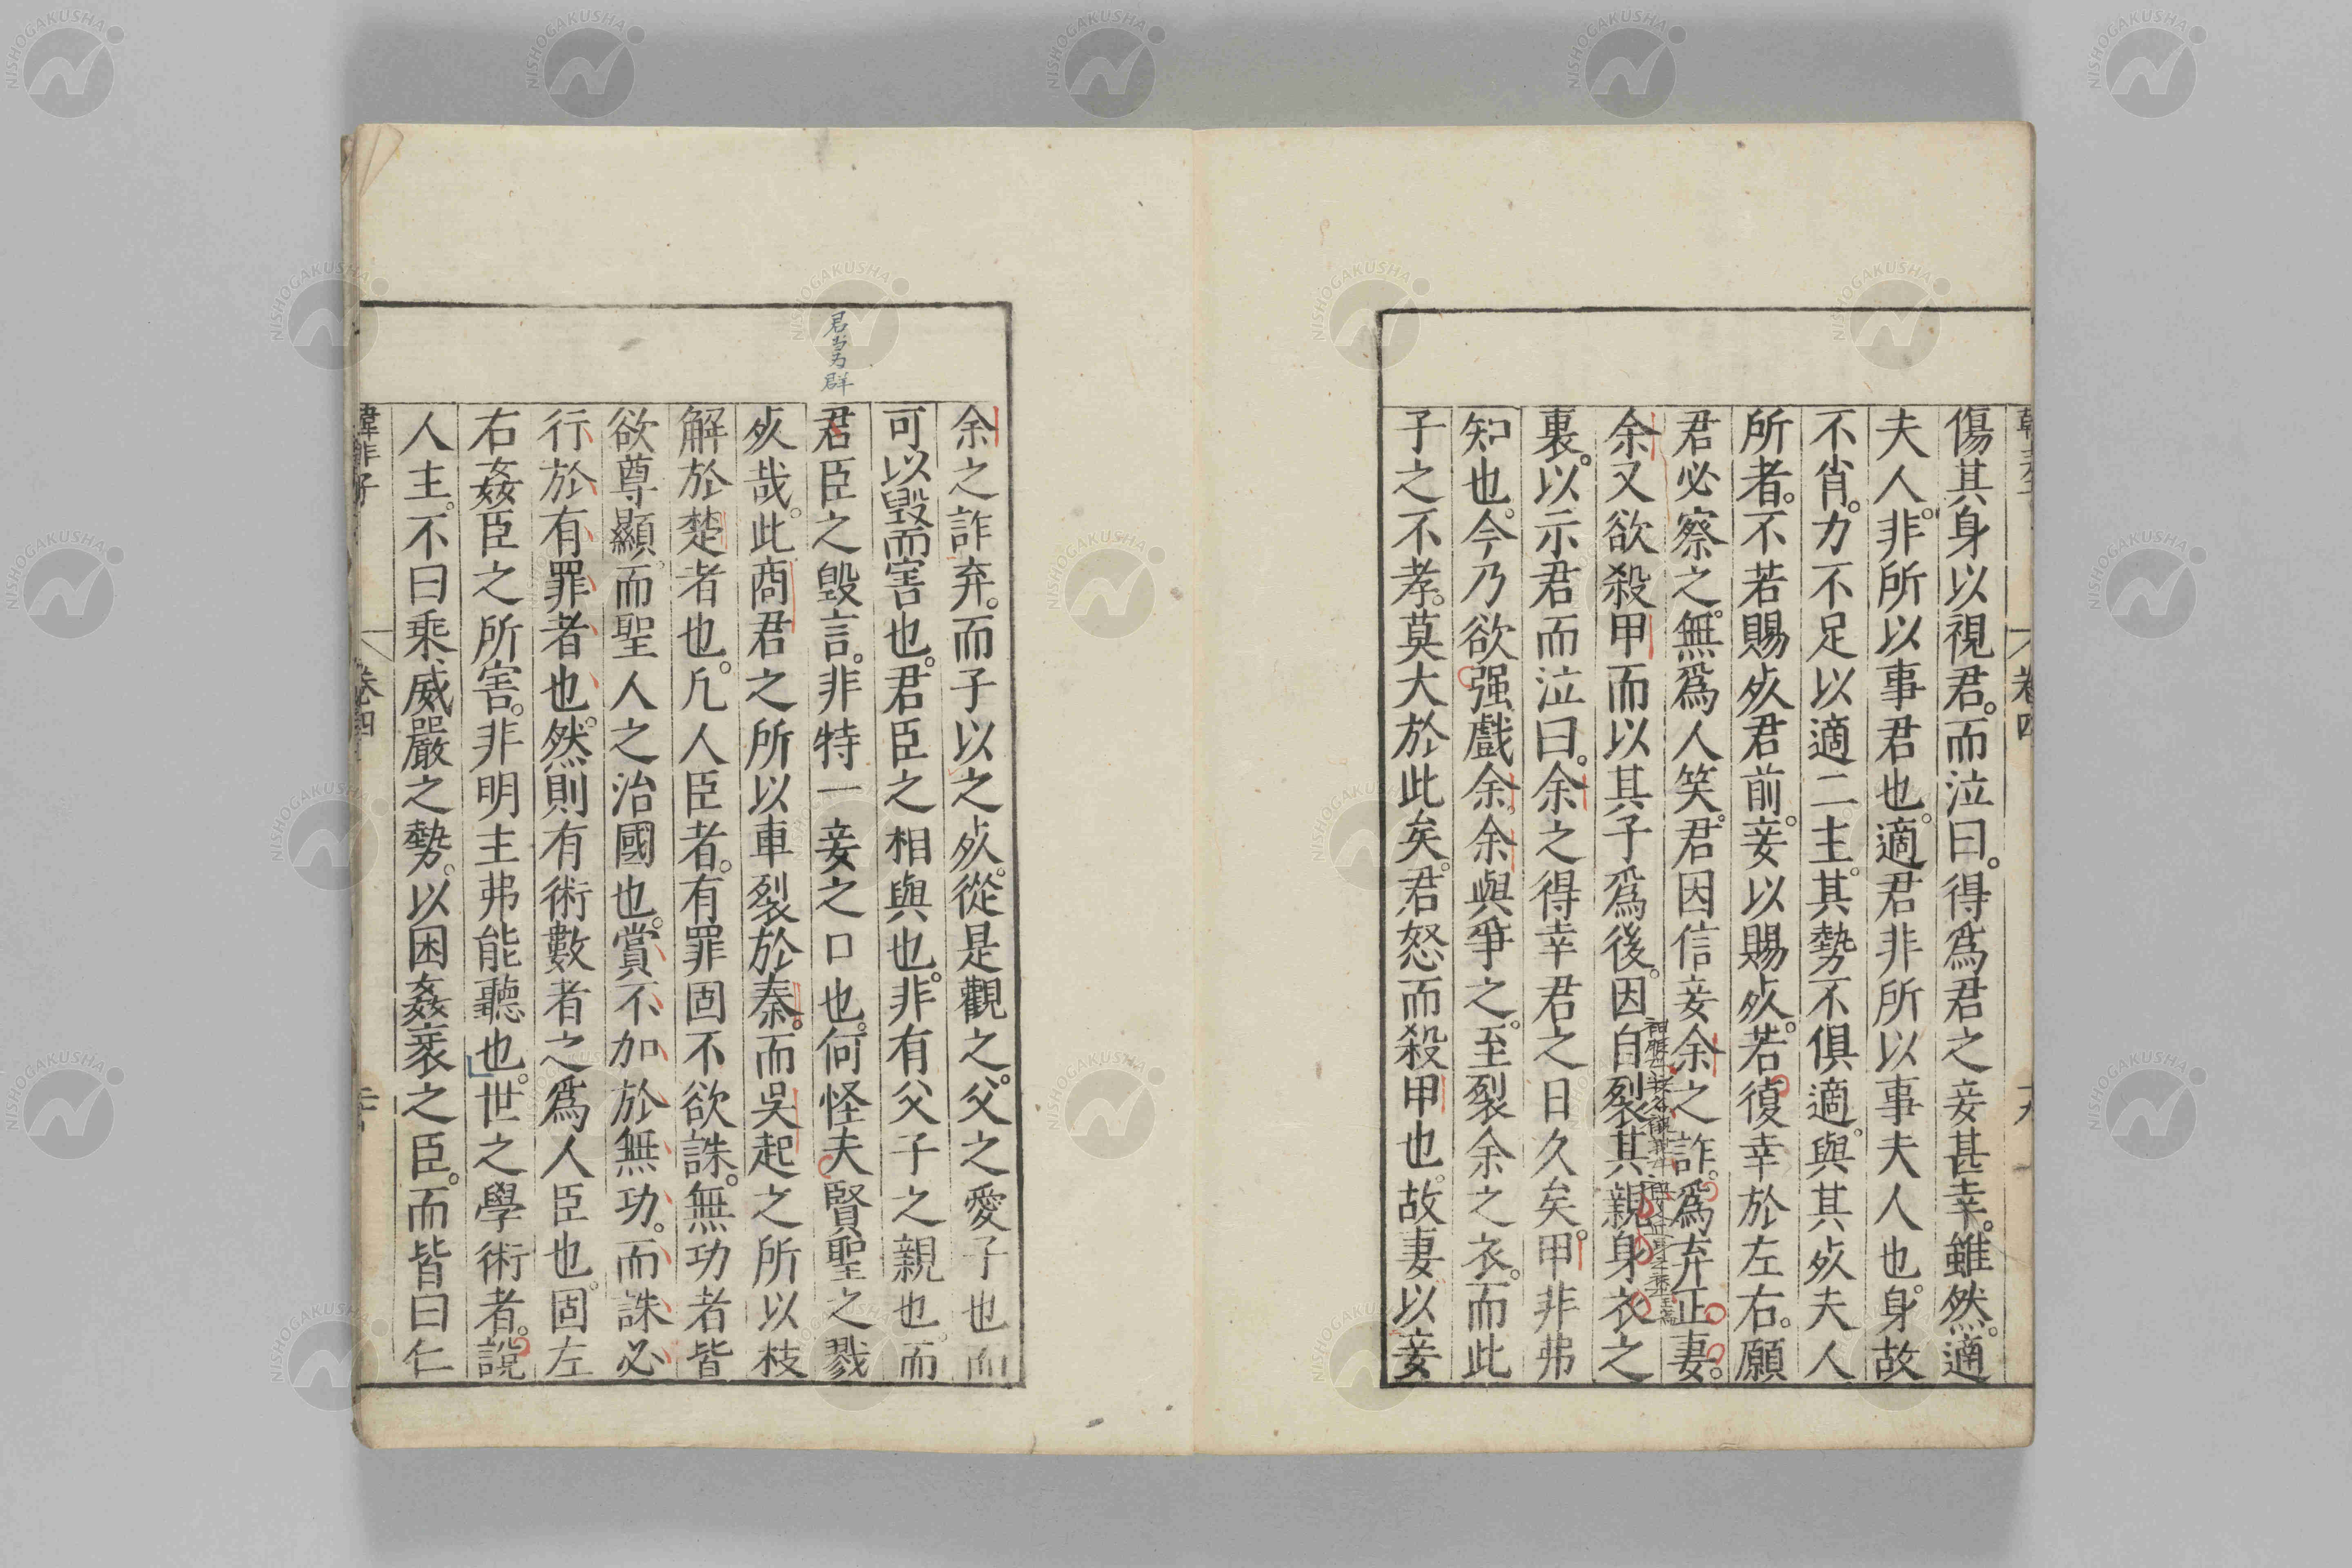 傷其身以視君。而泣曰。得爲君之妾甚幸。雖然。適
夫人。非所以事君也。適君非所以事夫人也。身故
不肖。力不足以適二主。其勢不俱適。與其死夫人
所者。不若賜死君前。妾以賜死。若復幸於左右。願
君必察之。無爲人笑。君因信妾余之詐。爲弃正妻。
余又欲殺甲而以其子爲後。因自裂其親身衣之
裏。以示君而泣曰。余之得幸君之日久矣。甲非弗
知也。今乃欲强戲余。余與爭之。至裂余之衣。而此
子之不孝。莫大於此矣。君怒而殺甲也。故妻以妾
余之詐弃。而子以之死。從是觀之。父之愛子也而
可以毀而害也。君臣之相與也。非有父子之親也。而
君臣之毀言。非特一妾之口也。何怪夫賢聖之戮
死哉。此商君之所以車裂於秦。而吳起之所以枝
解於楚者也。凡人臣者。有罪固不欲誅。無功者皆
欲尊顯。而聖人之治國也。賞不加於無功。而誅必
行於有罪者也。然則有術數者之爲人臣也。固左
右姦臣之所害。非明主弗能聽也。世之學術者。說
人主。不曰乘威嚴之勢。以困姦衺之臣。而皆曰仁
韓非子
卷四
君当为群
卷四
NISHOGAKUSHA